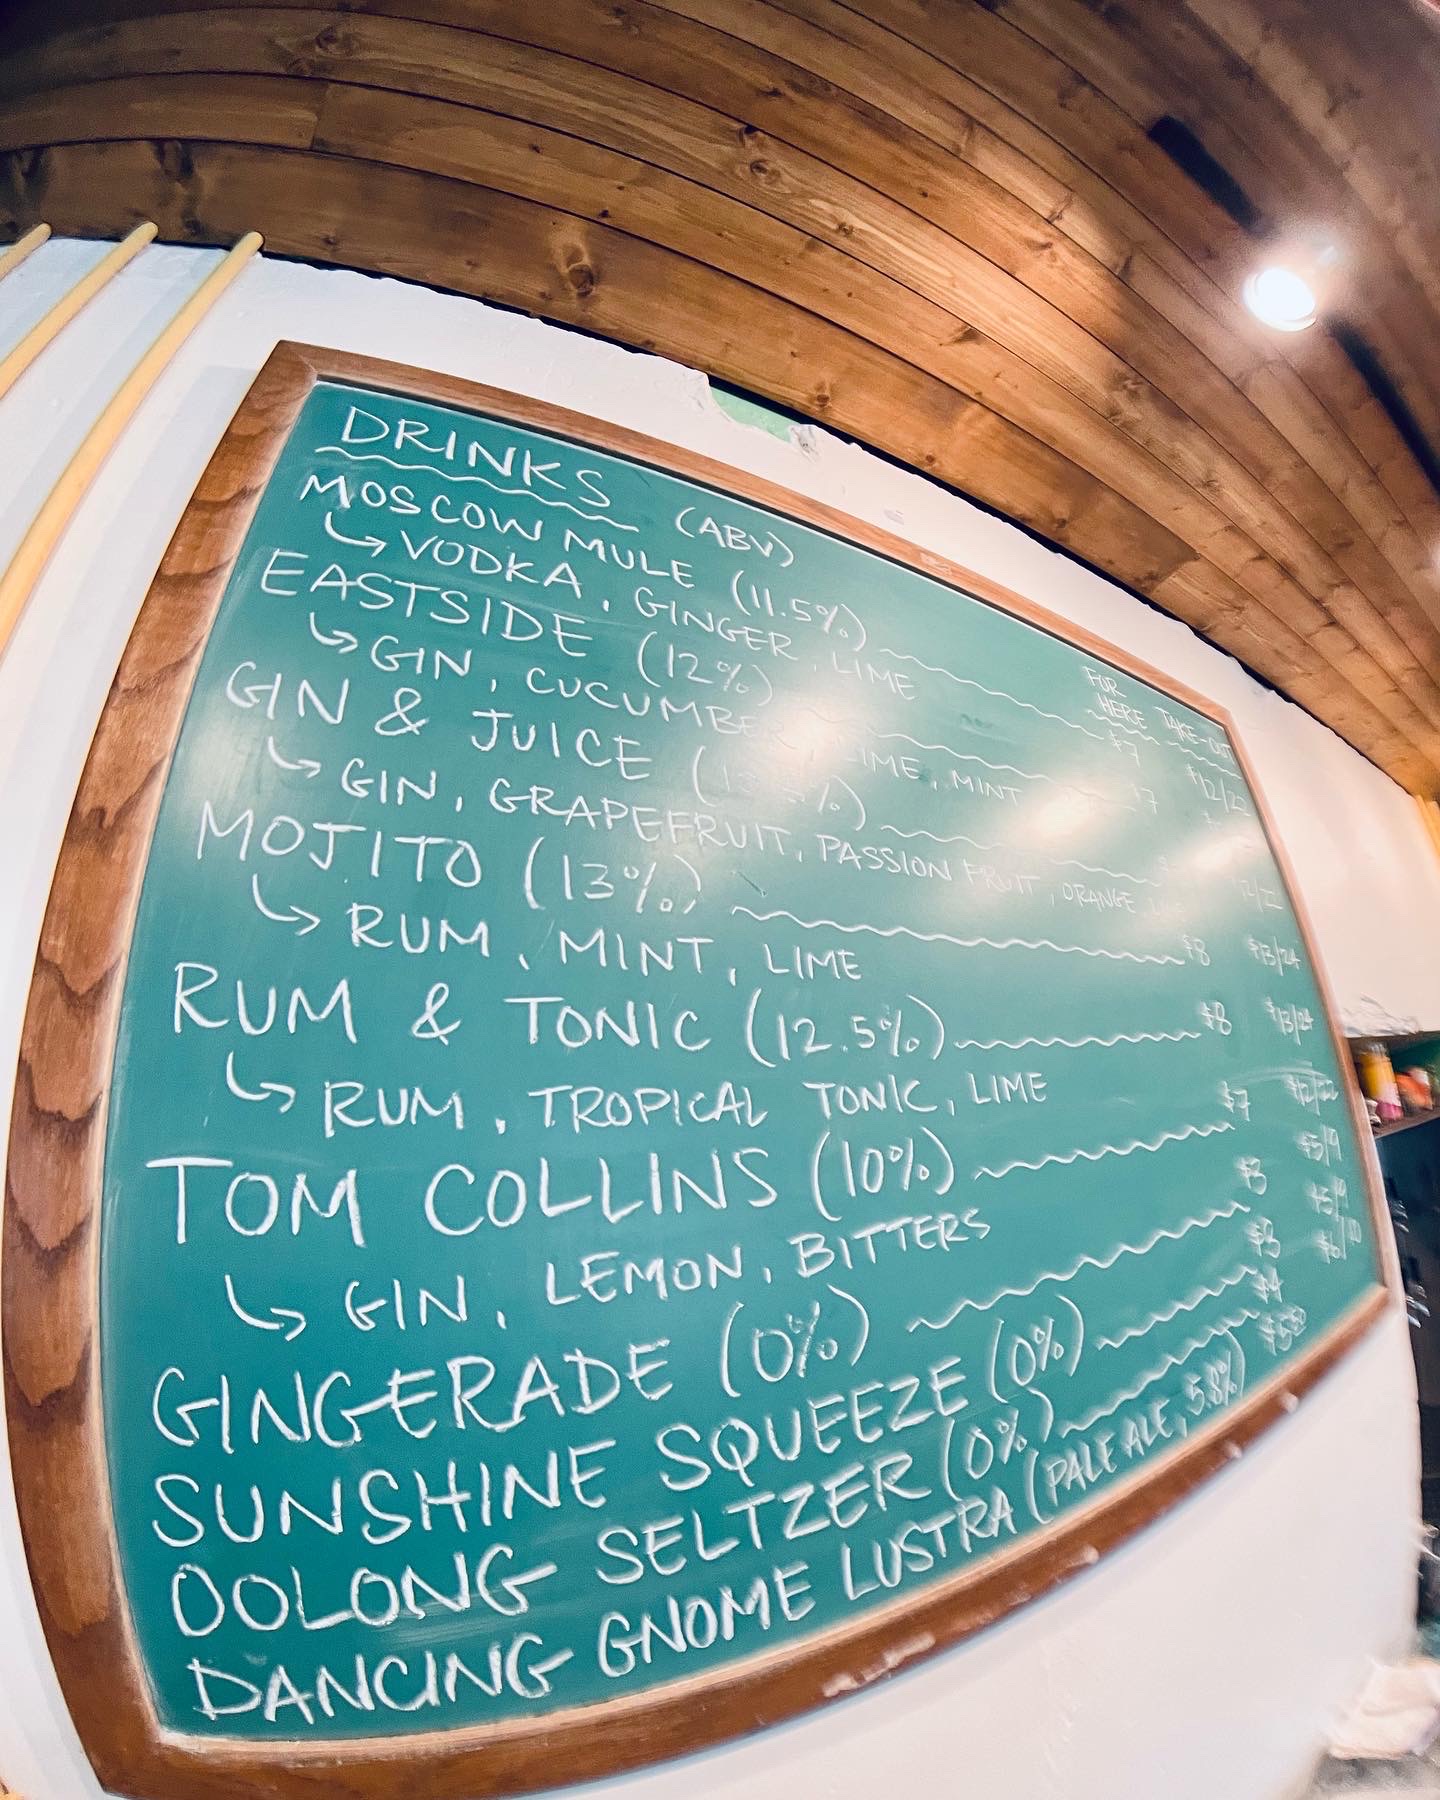 DRINKS (ABV)
FOR HERE TAKE-OUT
MOSCOW MULE (11.5%) $7 $12/22
VODKA, GINGER, LIME
EASTSIDE (12%) $7
GIN, CUCUMBER, LIME, MINT
GIN & JUICE
GIN, GRAPEFRUIT, PASSION FRUIT, ORANGE,
MOJITO (13%) $8 $13/24
RUM, MINT, LIME
RUM & TONIC (12.5%) $8 $13/24
RUM, TROPICAL TONIC, LIME
TOM COLLINS (10%) $7 $12/22
GIN, LEMON, BITTERS
GINGERADE (0%) $3 $5/9
SUNSHINE SQUEEZE (0%) $3 $5/9
OOLONG SELTZER (0%) $4 $6/10
DANCING GNOME LUSTRA (PALE ALE, 5.8%) $5.50